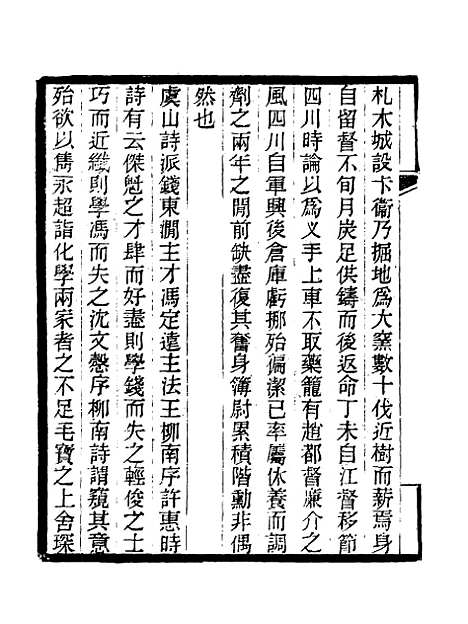 札木城設卡衛乃掘地為大窯數十伐近樹而薪焉身
自留督不旬月炭足供鑄而後返命丁未自江督移節
四川時論以為乂手上車不取藥籠有趙都督廉介之
風四川自軍興後倉庫虧挪殆偏潔己率屬休養而調
劑之兩年之閒前缺盡復其奮身簿尉累積階勳非偶
然也
虞山詩派錢東㵎主才馮定遠主法王柳南序許惠時
詩有云傑魁之才肆而好盡則學錢而失之輕俊之士
巧而近纖則學馮而失之沈文慤序柳南詩謂窺其意
殆欲以雋永超詣化學兩家者之不足毛寶之上舍琛